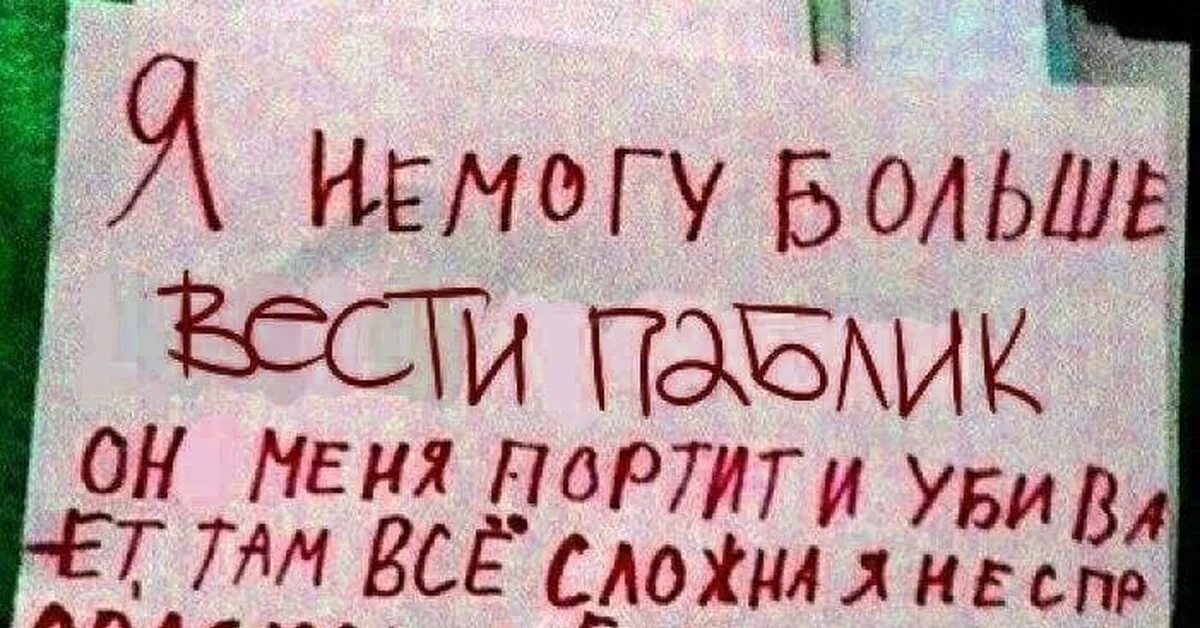 Я НЕМОГУ БОЛЬШЕ
ВЕСТИ ПАБЛИК
ОН МЕНЯ ПОРТИТ И УБИВА
ЕТ, ТАМ ВСЁ СЛОЖНА Я НЕСПР